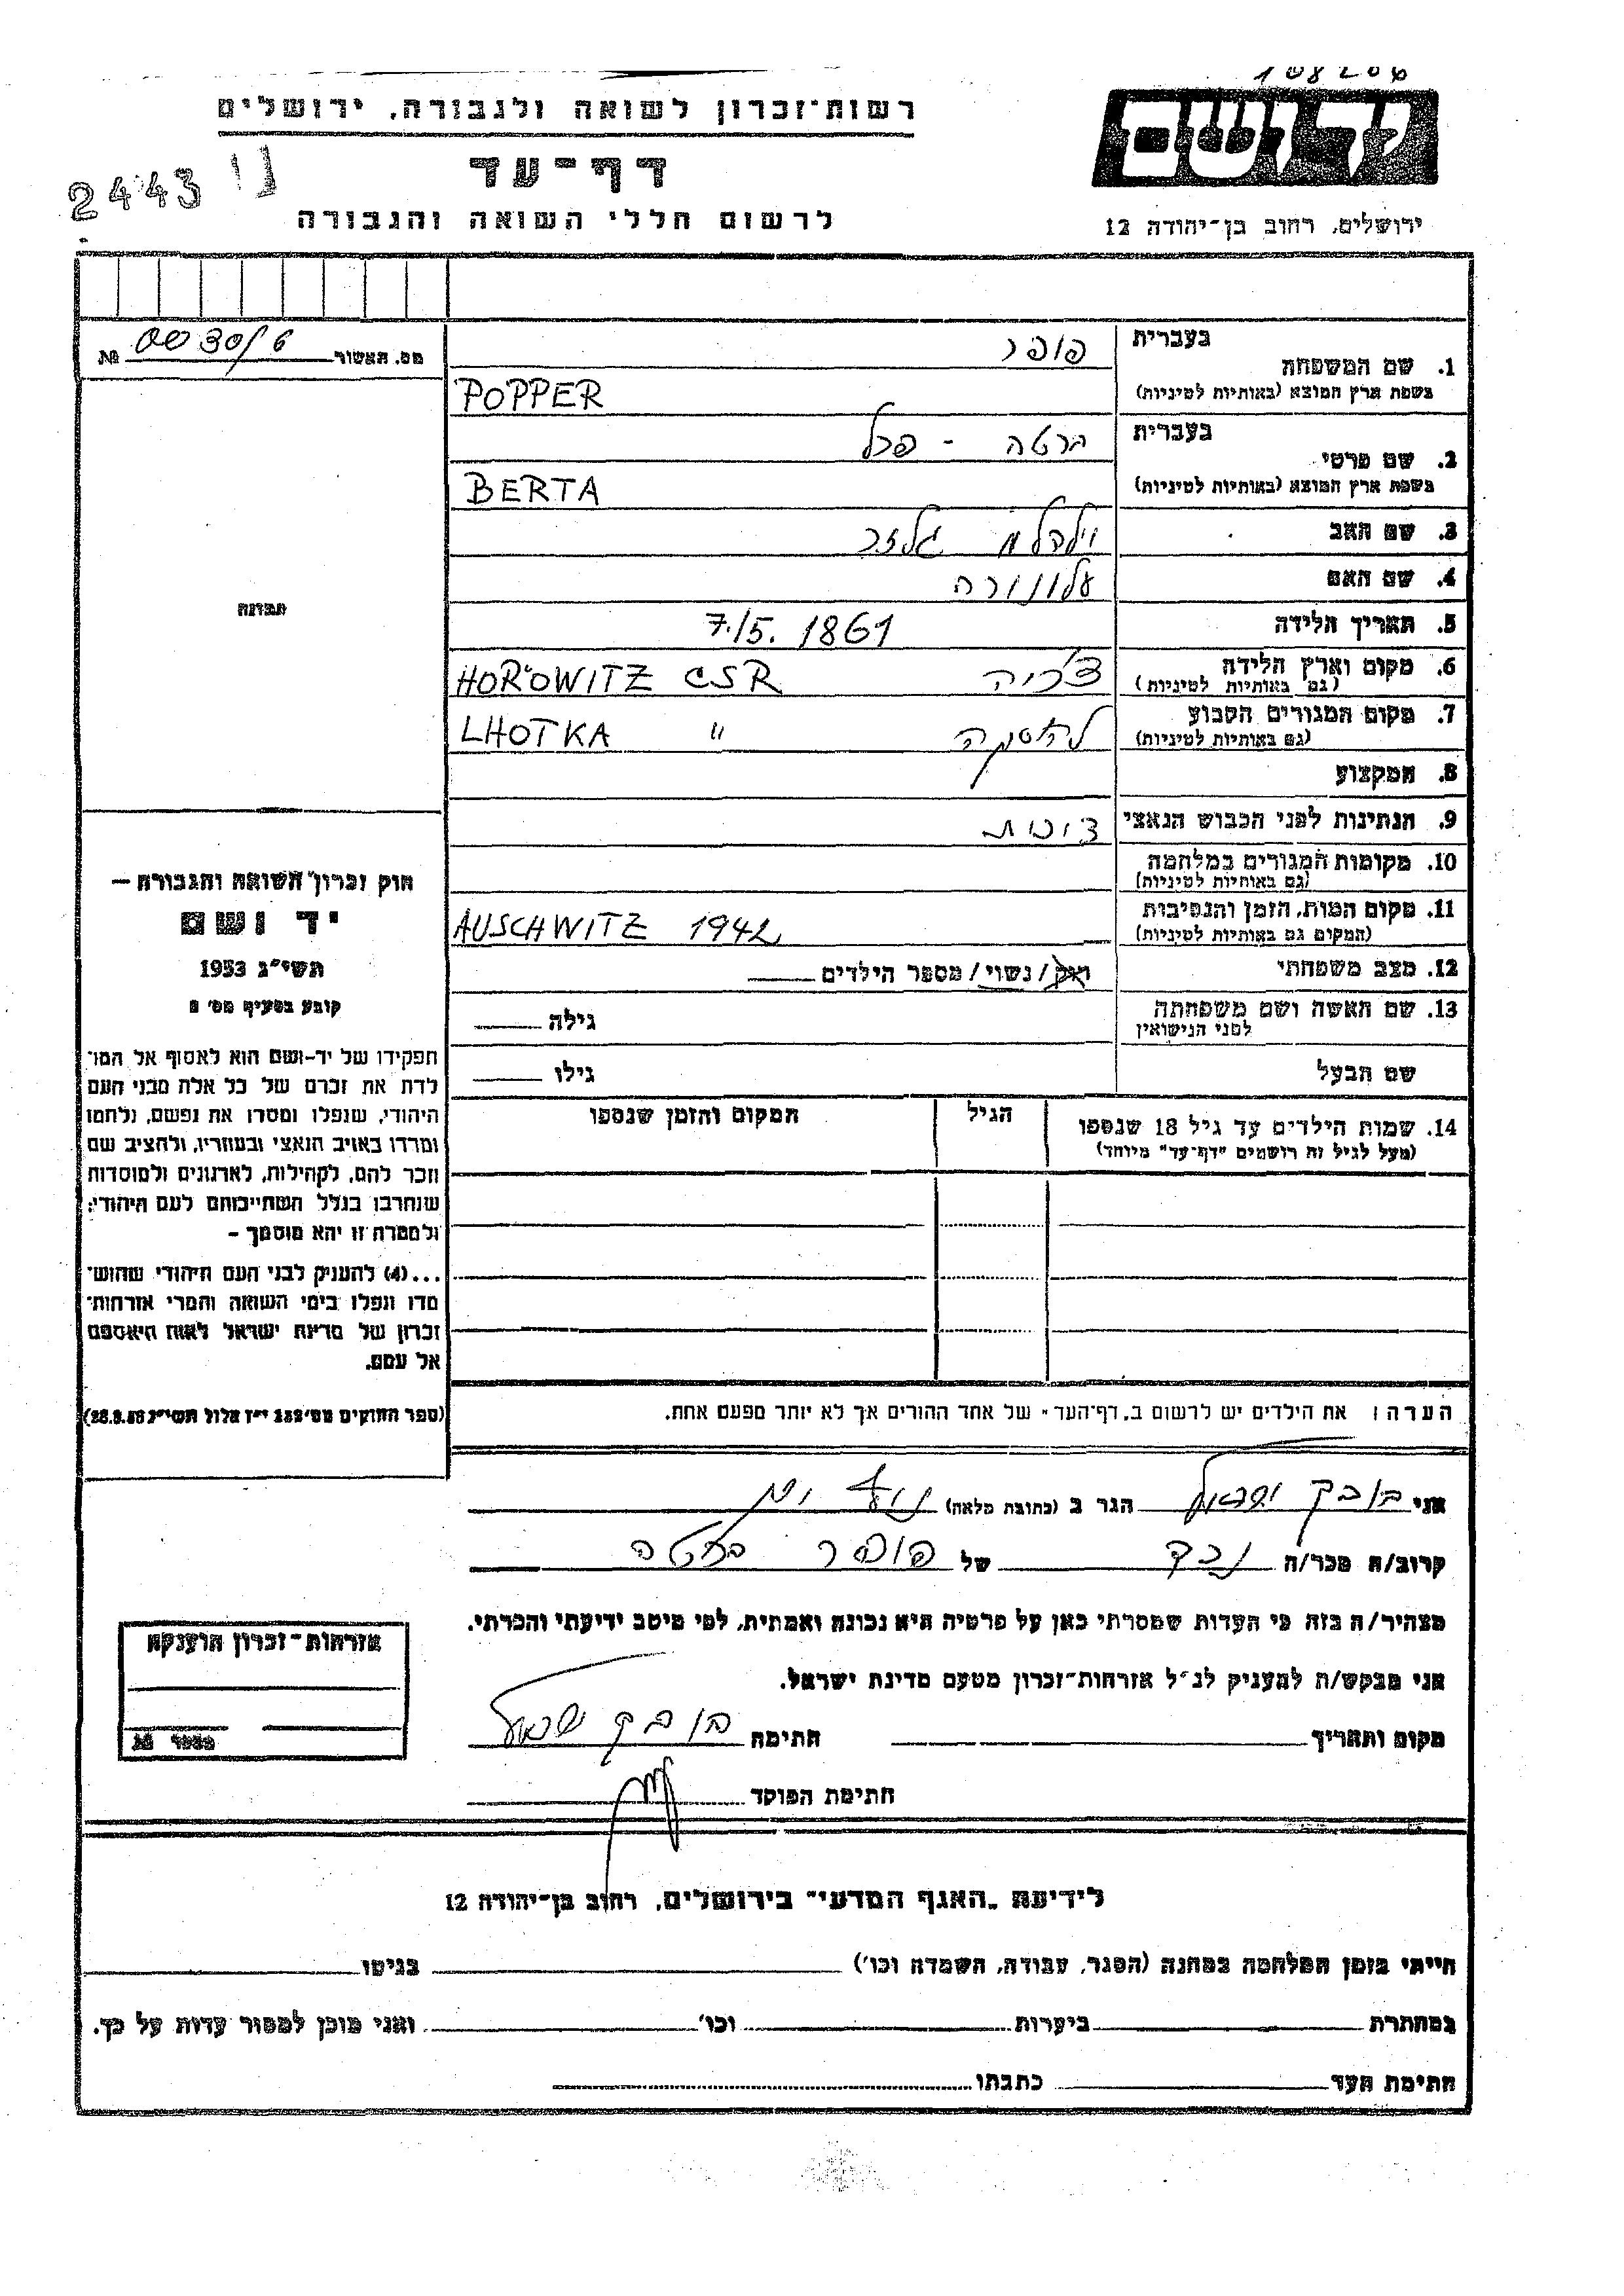 108206
רשות־זכרון לשואה ולגבורה, ירושלים
יד ושם
דף־עד
2443
לרשום חללי השואה והגבורה
ירושלים, רחוב בן־יהודה 12
מס. האשור 0030/6 №
בעברית
פופר
1. שם המשפחה
בשפת ארץ המוצא (באותיות לטיניות)
POPPER
בעברית
ברטה -
2. שם פרטי
בשפת ארץ המוצא (באותיות לטיניות)
BERTA
3. שם האב
וילהלם
4. שם האם
אלונורה
5. תאריך הלידה
7./5. 1861
6. מקום וארץ הלידה
(גם באותיות לטיניות)
צ'כיה
HOROWITZ CSR
7. מקום המגורים הקבוע
(גם באותיות לטיניות)
להוטקה
LHOTKA "
8. המקצוע
9. הנתינות לפני הכבוש הנאצי
צ'כית
10. מקומות המגורים במלחמה
(גם באותיות לטיניות)
11. מקום המות, הזמן והנסיבות
(המקום גם באותיות לטיניות)
AUSCHWITZ 1942
12. מצב משפחתי
רווק/נשוי/מספר הילדים
13. שם האשה ושם משפחתה
לפני הנישואין
גילה
שם הבעל
גילו
14. שמות הילדים עד גיל 18 שנספו
(מעל לגיל זה רושמים "דף־עד" מיוחד)
הגיל
המקום והזמן שנספו
הערה: את הילדים יש לרשום ב„דף־העד" של אחד ההורים אך לא יותר מפעם אחת.
תמונה
חוק זכרון השואה והגבורה —
יד ושם
תשי"ג 1953
קובע בסעיף מס' 2
תפקידו של יד-ושם הוא לאסוף אל המו־
לדת את זכרם של כל אלה מבני העם
היהודי, שנפלו ומסרו את נפשם, נלחמו
ומרדו באויב הנאצי ובעוזריו, ולהציב שם
וזכר להם, לקהילות, לארגונים ולמוסדות
שנחרבו בגלל השתייכותם לעם היהודי;
ולמטרה זו יהא מוסמך —
...(4) להעניק לבני העם היהודי שהוש־
מדו ונפלו בימי השואה והמרי אזרחות־
זכרון של מדינת ישראל לאות היאספם
אל עמם.
(ספר החוקים מס' 132 י"ז אלול תשי"ג 28.8.53)
אני בובק ישראל הגר ב (כתובת מלאה)
קרוב/ה מכר/ה נכד של פופר ברטה
מצהיר/ה בזה כי העדות שמסרתי כאן על פרטיה היא נכונה ואמתית, לפי מיטב ידיעתי והכרתי.
אני מבקש/ת להעניק לנ"ל אזרחות־זכרון מטעם מדינת ישראל.
מקום ותאריך חתימה בובק ישראל
חתימת הפוקד
אזרחות־זכרון הוענקה
מספר №
לידיעת „האגף המדעי" בירושלים, רחוב בן־יהודה 12
הייתי בזמן המלחמה במחנה (הסגר, עבודה, השמדה וכו') בגיטו
במחתרת ביערות וכו' ואני מוכן למסור עדות על כך.
חתימת העד כתבתו